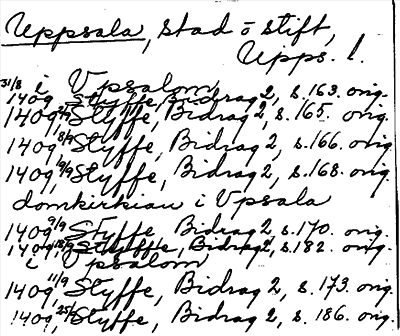 Uppsala, stad o stift,
Upps. l.
i Vpsalom
31/8 1409, Styffe, Bidrag 2, s. 163. orig.
1409, Styffe, Bidrag 2, s. 165. orig.
1409, 8/9 Styffe, Bidrag 2, s. 166. orig.
1409, 9/9 Styffe, Bidrag 2, s. 168. orig.
domkirkian i Vpsala
1409 9/9 Styffe, Bidrag 2, s. 170. orig.
1409, Styffe, Bidrag 2, s. 182. orig.
i Vpsalom
1409, 11/9 Styffe, Bidrag 2, s. 173. orig.
1409, 25/9 Styffe, Bidrag 2, s. 186. orig.